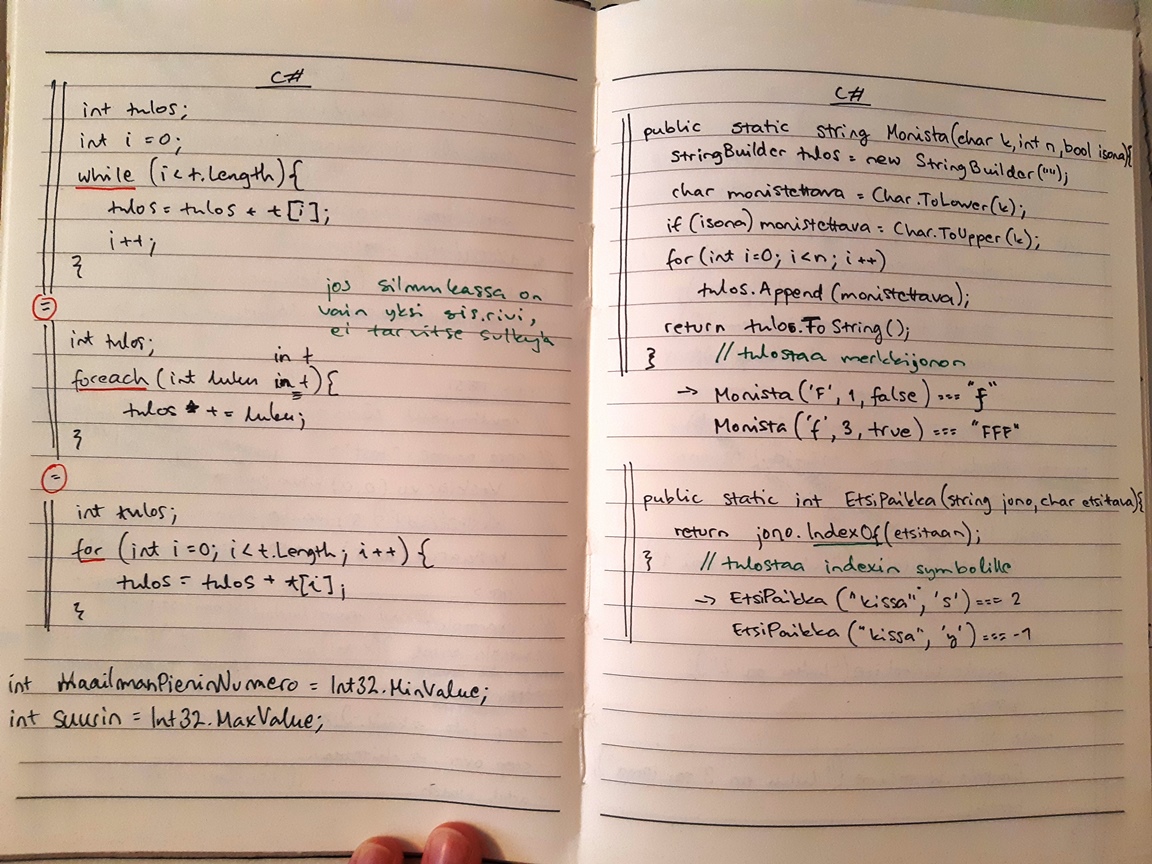 C#
int tulos;
int i = 0;
while (i < t.Length) {
tulos = tulos + t[i];
i++;
}
=
jos silmukassa on
vain yksi sis.rivi,
ei tarvitse sulkuja
int tulos;
in t
foreach (int luku in t) {
tulos += luku;
}
=
int tulos;
for (int i=0; i<t.Length; i++) {
tulos = tulos + t[i];
}
int MaailmanPieninNumero = Int32.MinValue;
int suurin = Int32.MaxValue;
C#
public static string Monista(char k, int n, bool isona){
StringBuilder tulos = new StringBuilder("");
char monistettava = Char.ToLower(k);
if (isona) monistettava = Char.ToUpper(k);
for (int i=0; i<n; i++)
tulos.Append(monistettava);
return tulos.ToString();
} // tulostaa merkkijonon
→ Monista('F', 1, false) === "f"
Monista('f', 3, true) === "FFF"
public static int EtsiPaikka(string jono, char etsitava){
return jono.IndexOf(etsitaan);
} // tulostaa indexin symbolille
→ EtsiPaikka("kissa", 's') === 2
EtsiPaikka("kissa", 'y') === -1